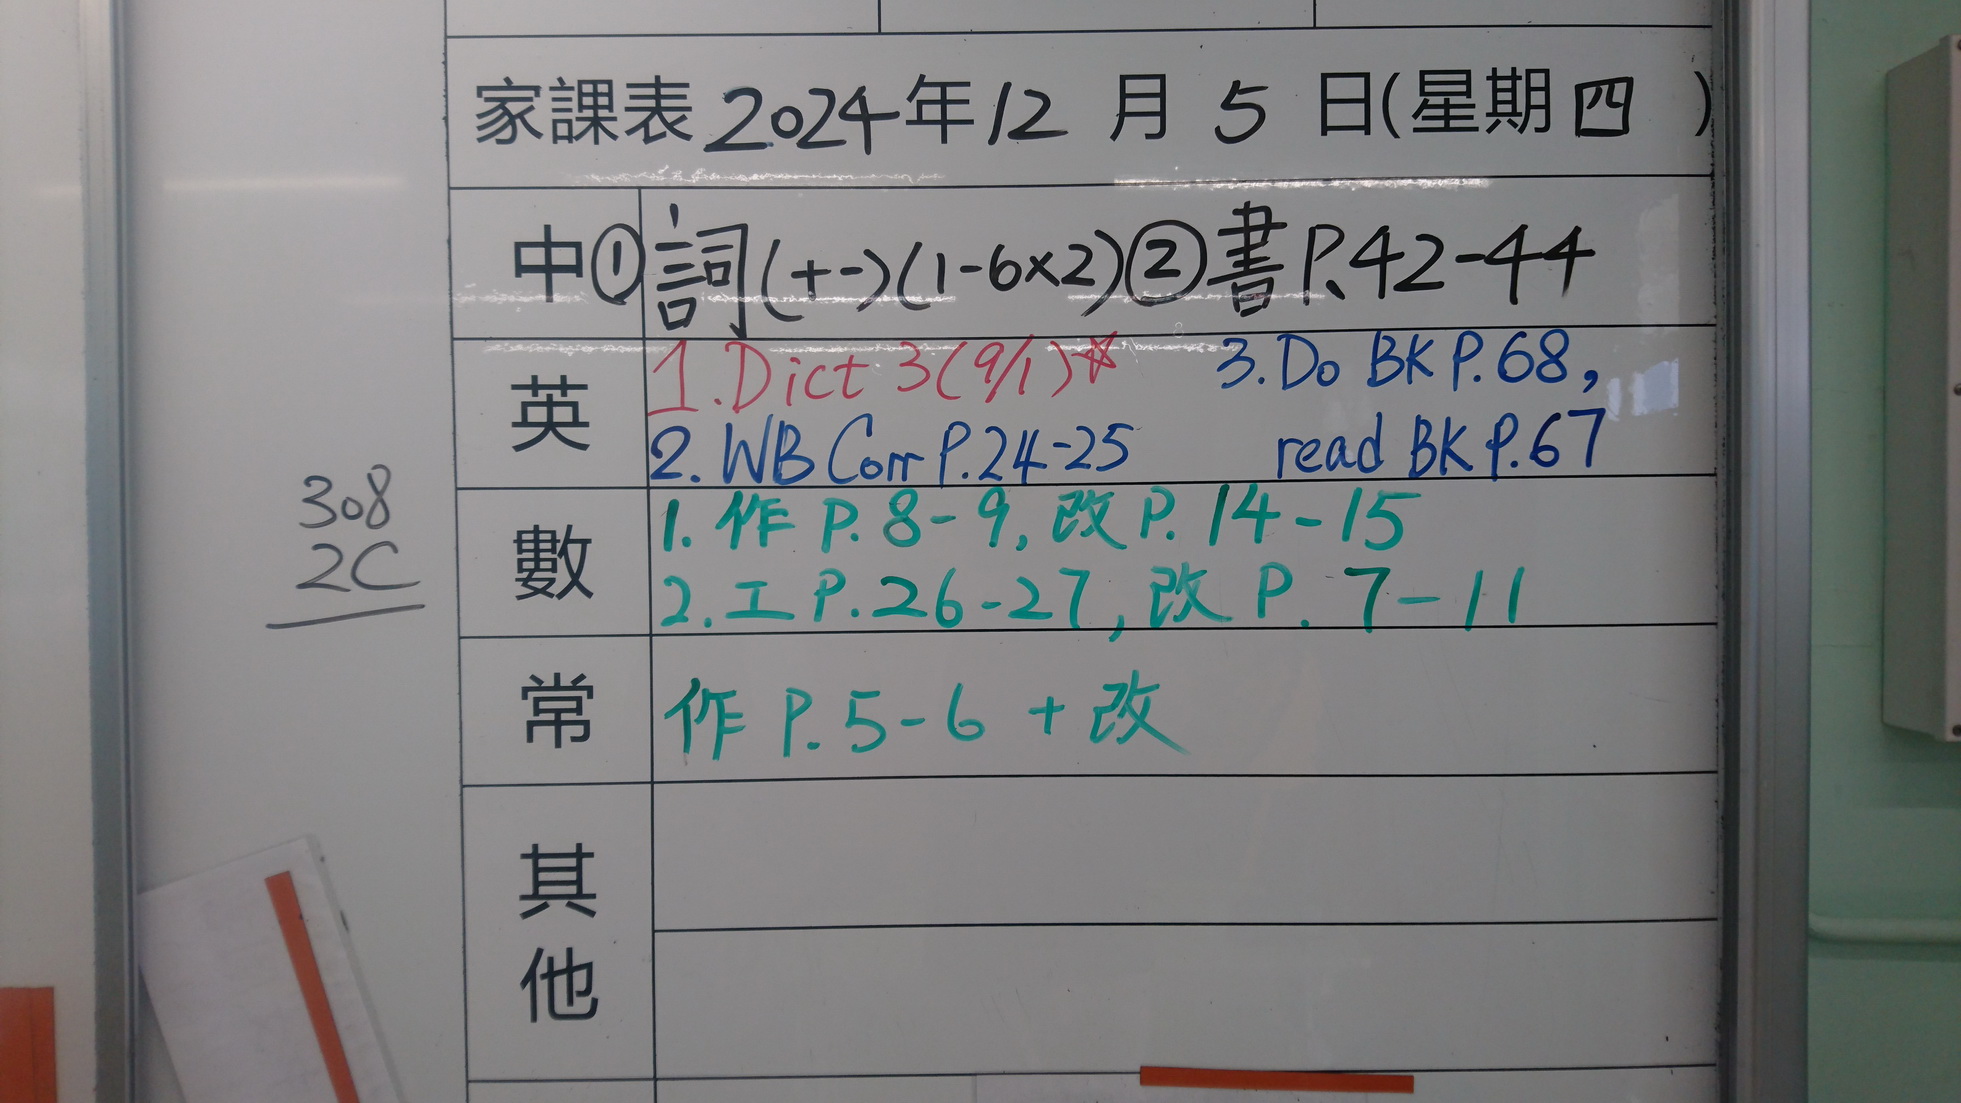 家課表 2024年12月5日(星期四)
中 ①詞(十一)(1-6×2)②書P.42-44
英 1.Dict 3(9/1)☆ 3.Do BK P.68,
2. WB Corr P.24-25 read BK P.67
數 1. 作 P.8-9, 改 P. 14-15
2. 工 P.26-27, 改 P. 7-11
常 作 P.5-6 + 改
其他
308
2C